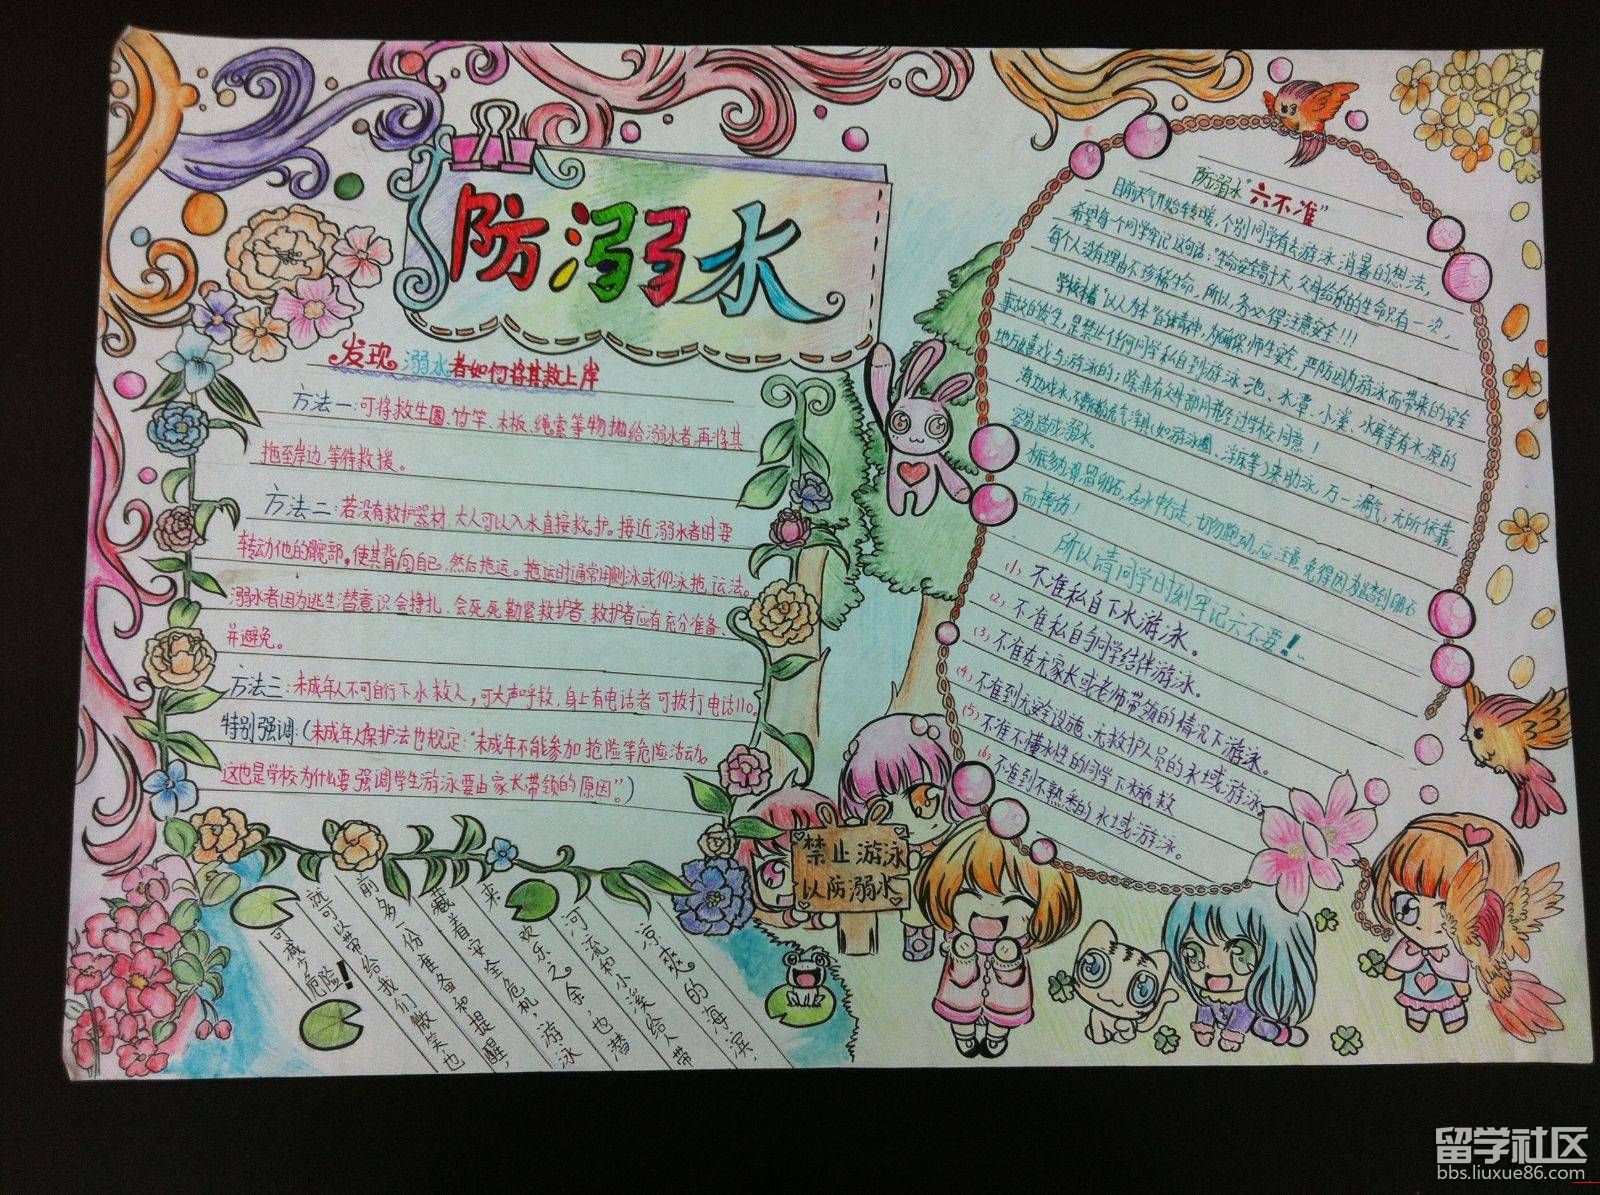 防溺水
发现溺水者如何将其救上岸
方法一:可将救生圈、竹竿、木板、绳索等物抛给溺水者,再将其
拖至岸边,等待救援。
方法二:若没有救护器材,大人可以入水直接救护。接近溺水者时要
转动他的髋部,使其背向自己,然后拖运。拖运时通常用侧泳或仰泳拖运法。
溺水者因为逃生潜意识会挣扎、会死死勒紧救护者,救护者应有充分准备、
并避免。
方法三:未成年人不可自行下水救人,可大声呼救,身上有电话者可拔打电话110。
特别强调:(未成年人保护法也规定:“未成年不能参加抢险等危险活动。
这也是学校为什么要强调学生游泳要由家长带领的原因”。)
凉爽的海滨,
河流和小溪给人带
来欢乐之余,也潜
藏着安全危机,游泳
前多一份准备和提醒,
就可以带给我们微笑,也
可减少危险!
禁止游泳
以防溺水
防溺水“六不准”
目前天气开始转暖,个别同学有去游泳消暑的想法,
希望每个同学牢记这句话:“生命安全高于天,父母给你的生命只有一次,
每个人没有理由不珍稀生命,所以,务必得注意安全!!!
学校本着“以人为本”的精神,为确保师生安全,严防因为游泳而带来的安全
事故的发生,是禁止任何同学私自到游泳池、水潭、小溪、水库等有水源的
地方嬉戏与游泳的;除非有父母部同并经过学校同意!
海边戏水,不要依赖充气浮具(如游泳圈、浮床等)来助泳,万一漏气,无所依靠,
容易造成溺水。
在水中行走,切勿跑动,应注意免得因为踩到卵石
而摔伤!
所以请同学时刻牢记六不要!
(1)不准私自下水游泳。
(2)不准私自与同学结伴游泳。
(3)不准在无家长或老师带领的情况下游泳。
(4)不准到无安全设施、无救护人员的水域游泳。
(5)不准不懂水性的同学下水施救
(6)不准到不熟悉的水域游泳。
留学社区
bbs.liuxue86.com